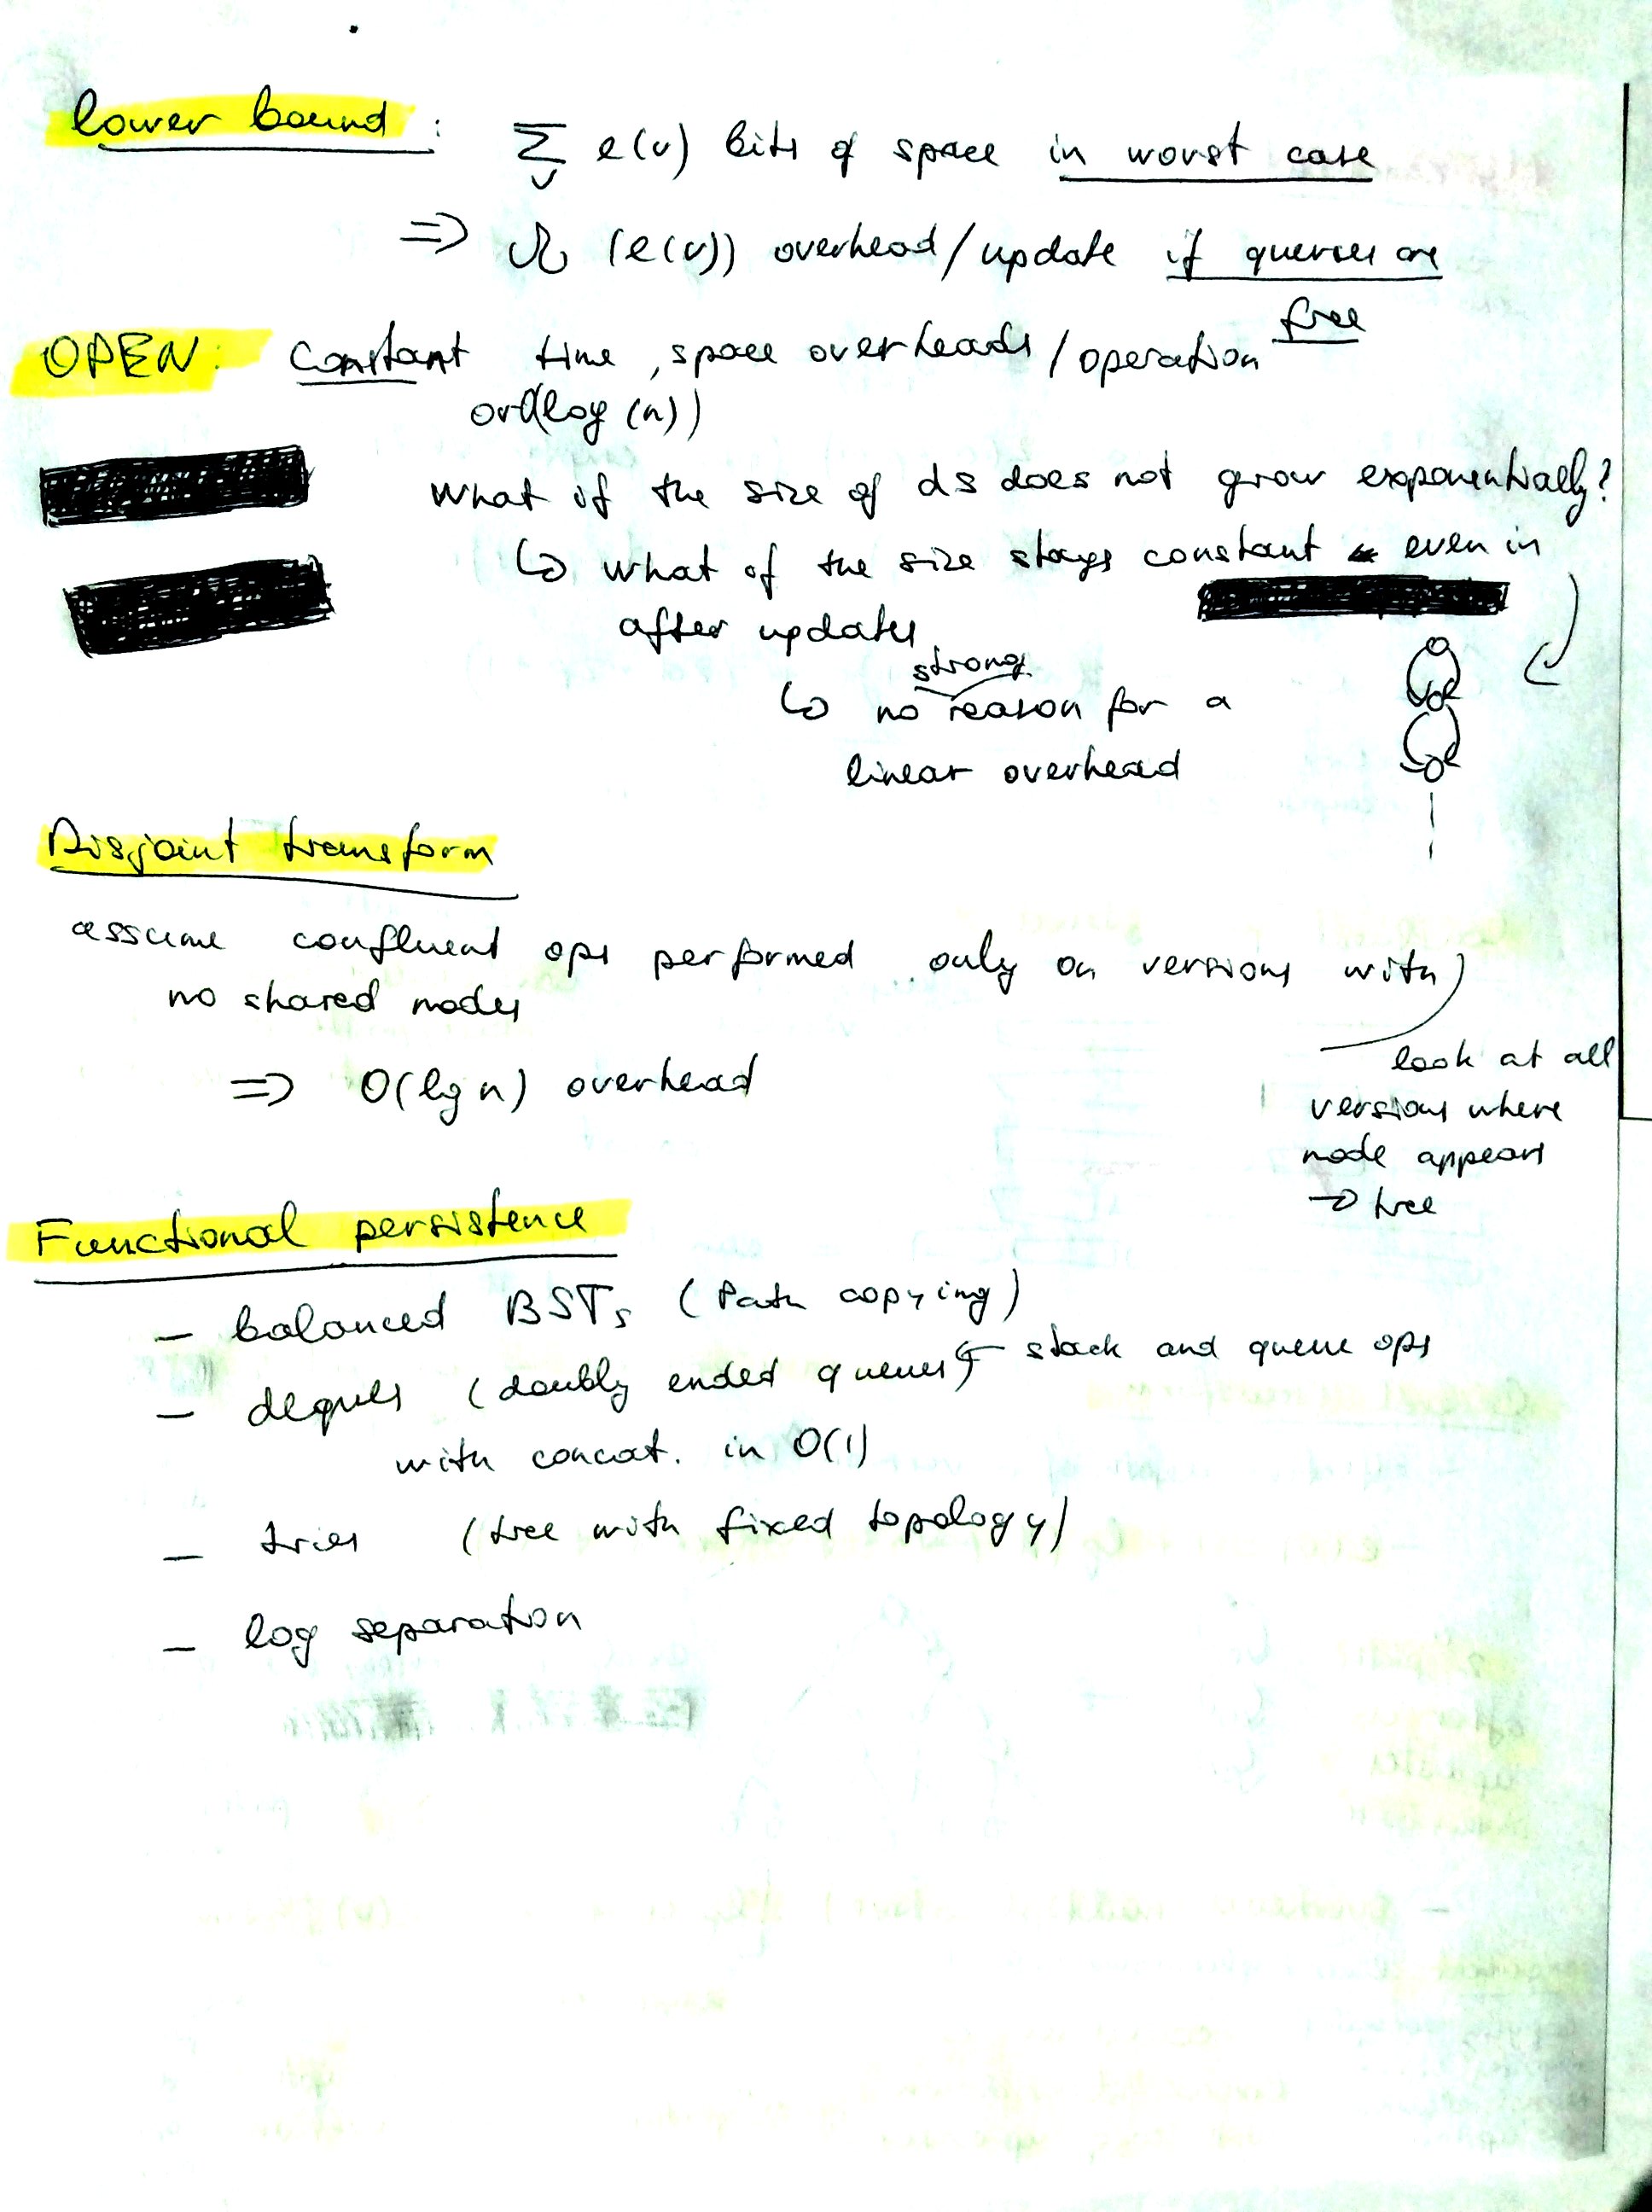 lower bound : Σ e(v) bits of space in worst case
v
=> Ω (e(v)) overhead/update if queries are
free
OPEN: Constant time, space overheads / operation
or O(log (n))
What if the size of ds does not grow exponentially?
↳ what if the size stays constant even in
after updates
strong
↳ no reason for a
linear overhead
Disjoint transform
assume confluent ops performed only on versions with
no shared nodes
look at all
=> O(lg n) overhead
versions where
node appears
→ tree
Functional persistence
- balanced BSTs (Path copying)
- deques (doubly ended queues) ← stack and queue ops
with concat. in O(1)
- tries (tree with fixed topology)
- log separation